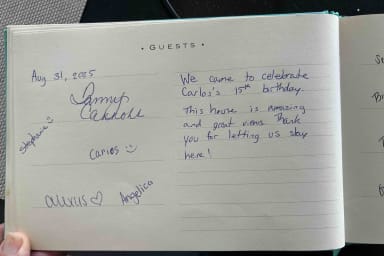 • GUESTS •
Aug 31, 2025
Danny
Carroll
Stephanie
Carlos
Alexus
Angelica
We came to celebrate
Carlos's 15th birthday.
This house is amazing
and great views Thank
you for letting us stay
here!